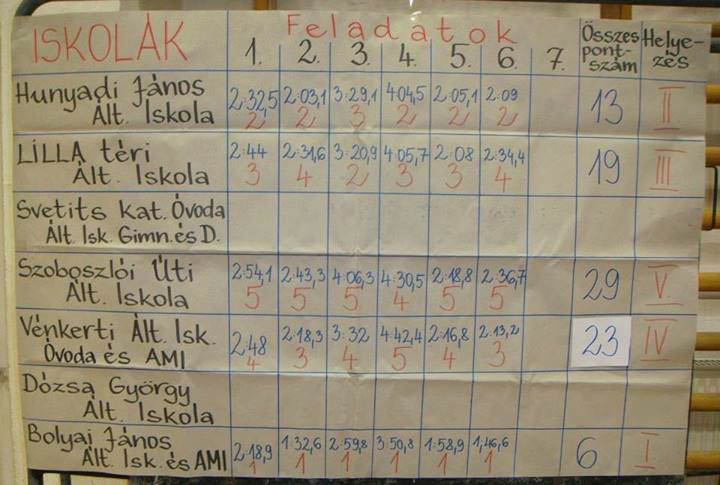 ISKOLÁK Feladatok Összes pont-szám Helye-zés
1. 2. 3. 4. 5. 6. 7.
Hunyadi János 2:32,5 2:03,1 3:29,1 4:04,5 2:05,1 2:09
Ált. Iskola 2 2 3 2 2 2 13 II
LILLA téri 2:44 2:31,6 3:20,9 4:05,7 2:08 2:34,4
Ált. Iskola 3 4 2 3 3 4 19 III
Svetits Kat. Óvoda
Ált. Isk. Gimn. és D.
Szoboszlói Úti 2:54,1 2:43,3 4:06,3 4:30,5 2:18,8 2:36,7
Ált. Iskola 5 5 5 4 5 5 29 V.
Vénkerti Ált. Isk. 2:48 2:18,3 3:32 4:42,4 2:16,8 2:13,2
Óvoda és AMI 4 3 4 5 4 3 23 IV
Dózsa György
Ált. Iskola
Bolyai János 2:18,9 1:32,6 2:59,8 3:50,8 1:58,9 1,46,6
Ált. Isk. és AMI 1 1 1 1 1 1 6 I